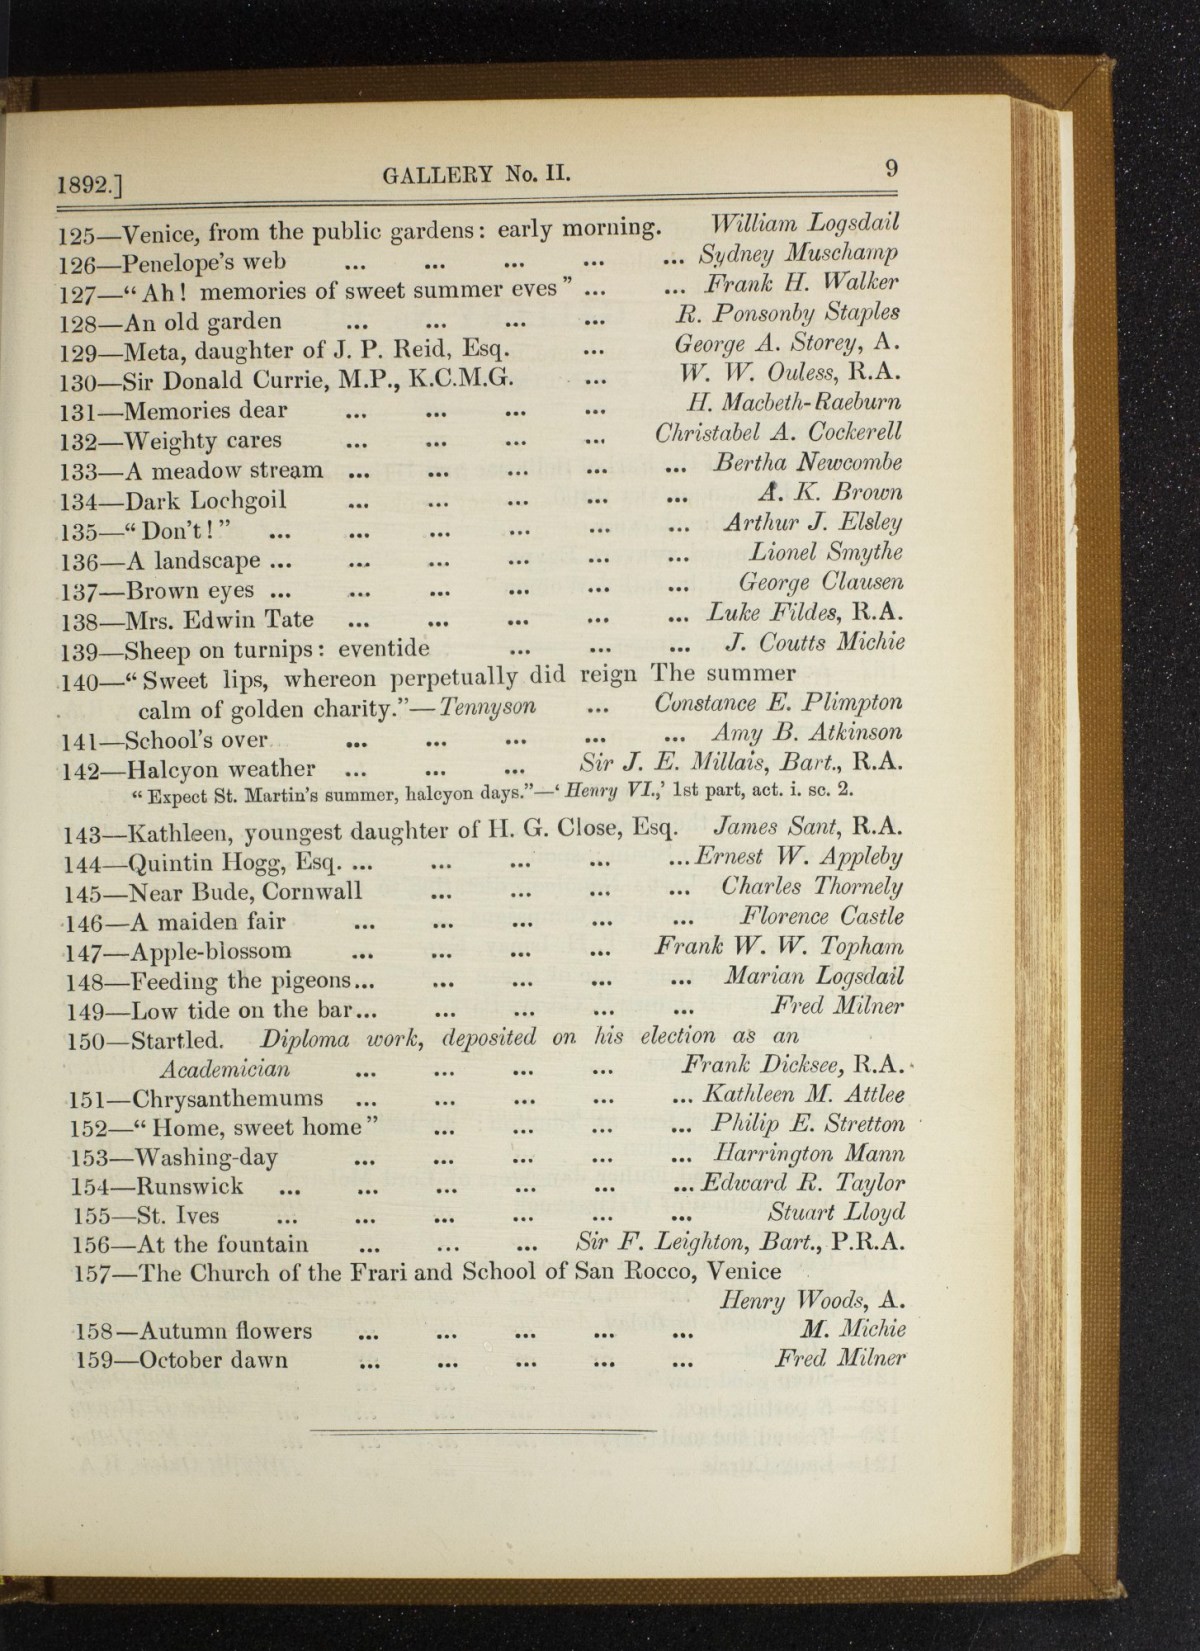 1892.] GALLERY No. II. 9
125—Venice, from the public gardens: early morning. William Logsdail
126—Penelope's web ... ... ... ... ... Sydney Muschamp
127—“Ah! memories of sweet summer eves” ... ... Frank H. Walker
128—An old garden ... ... ... ... R. Ponsonby Staples
129—Meta, daughter of J. P. Reid, Esq. ... George A. Storey, A.
130—Sir Donald Currie, M.P., K.C.M.G. ... W. W. Ouless, R.A.
131—Memories dear ... ... ... ... H. Macbeth-Raeburn
132—Weighty cares ... ... ... ... Christabel A. Cockerell
133—A meadow stream ... ... ... ... ... Bertha Newcombe
134—Dark Lochgoil ... ... ... ... ... A. K. Brown
135—“Don't!” ... ... ... ... ... ... Arthur J. Elsley
136—A landscape ... ... ... ... ... ... Lionel Smythe
137—Brown eyes ... ... ... ... ... ... George Clausen
138—Mrs. Edwin Tate ... ... ... ... ... Luke Fildes, R.A.
139—Sheep on turnips: eventide ... ... ... J. Coutts Michie
140—“Sweet lips, whereon perpetually did reign The summer
calm of golden charity.”—Tennyson ... Constance E. Plimpton
141—School's over ... ... ... ... ... Amy B. Atkinson
142—Halcyon weather ... ... ... Sir J. E. Millais, Bart., R.A.
“Expect St. Martin's summer, halcyon days.”—‘Henry VI.,’ 1st part, act. i. sc. 2.
143—Kathleen, youngest daughter of H. G. Close, Esq. James Sant, R.A.
144—Quintin Hogg, Esq. ... ... ... ... ... Ernest W. Appleby
145—Near Bude, Cornwall ... ... ... ... Charles Thornely
146—A maiden fair ... ... ... ... ... Florence Castle
147—Apple-blossom ... ... ... ... Frank W. W. Topham
148—Feeding the pigeons... ... ... ... ... Marian Logsdail
149—Low tide on the bar... ... ... ... ... Fred Milner
150—Startled. Diploma work, deposited on his election as an
Academician ... ... ... ... Frank Dicksee, R.A.
151—Chrysanthemums ... ... ... ... ... Kathleen M. Attlee
152—“Home, sweet home” ... ... ... ... Philip E. Stretton
153—Washing-day ... ... ... ... ... Harrington Mann
154—Runswick ... ... ... ... ... ... Edward R. Taylor
155—St. Ives ... ... ... ... ... ... Stuart Lloyd
156—At the fountain ... ... ... Sir F. Leighton, Bart., P.R.A.
157—The Church of the Frari and School of San Rocco, Venice
Henry Woods, A.
158—Autumn flowers ... ... ... ... ... M. Michie
159—October dawn ... ... ... ... ... Fred Milner